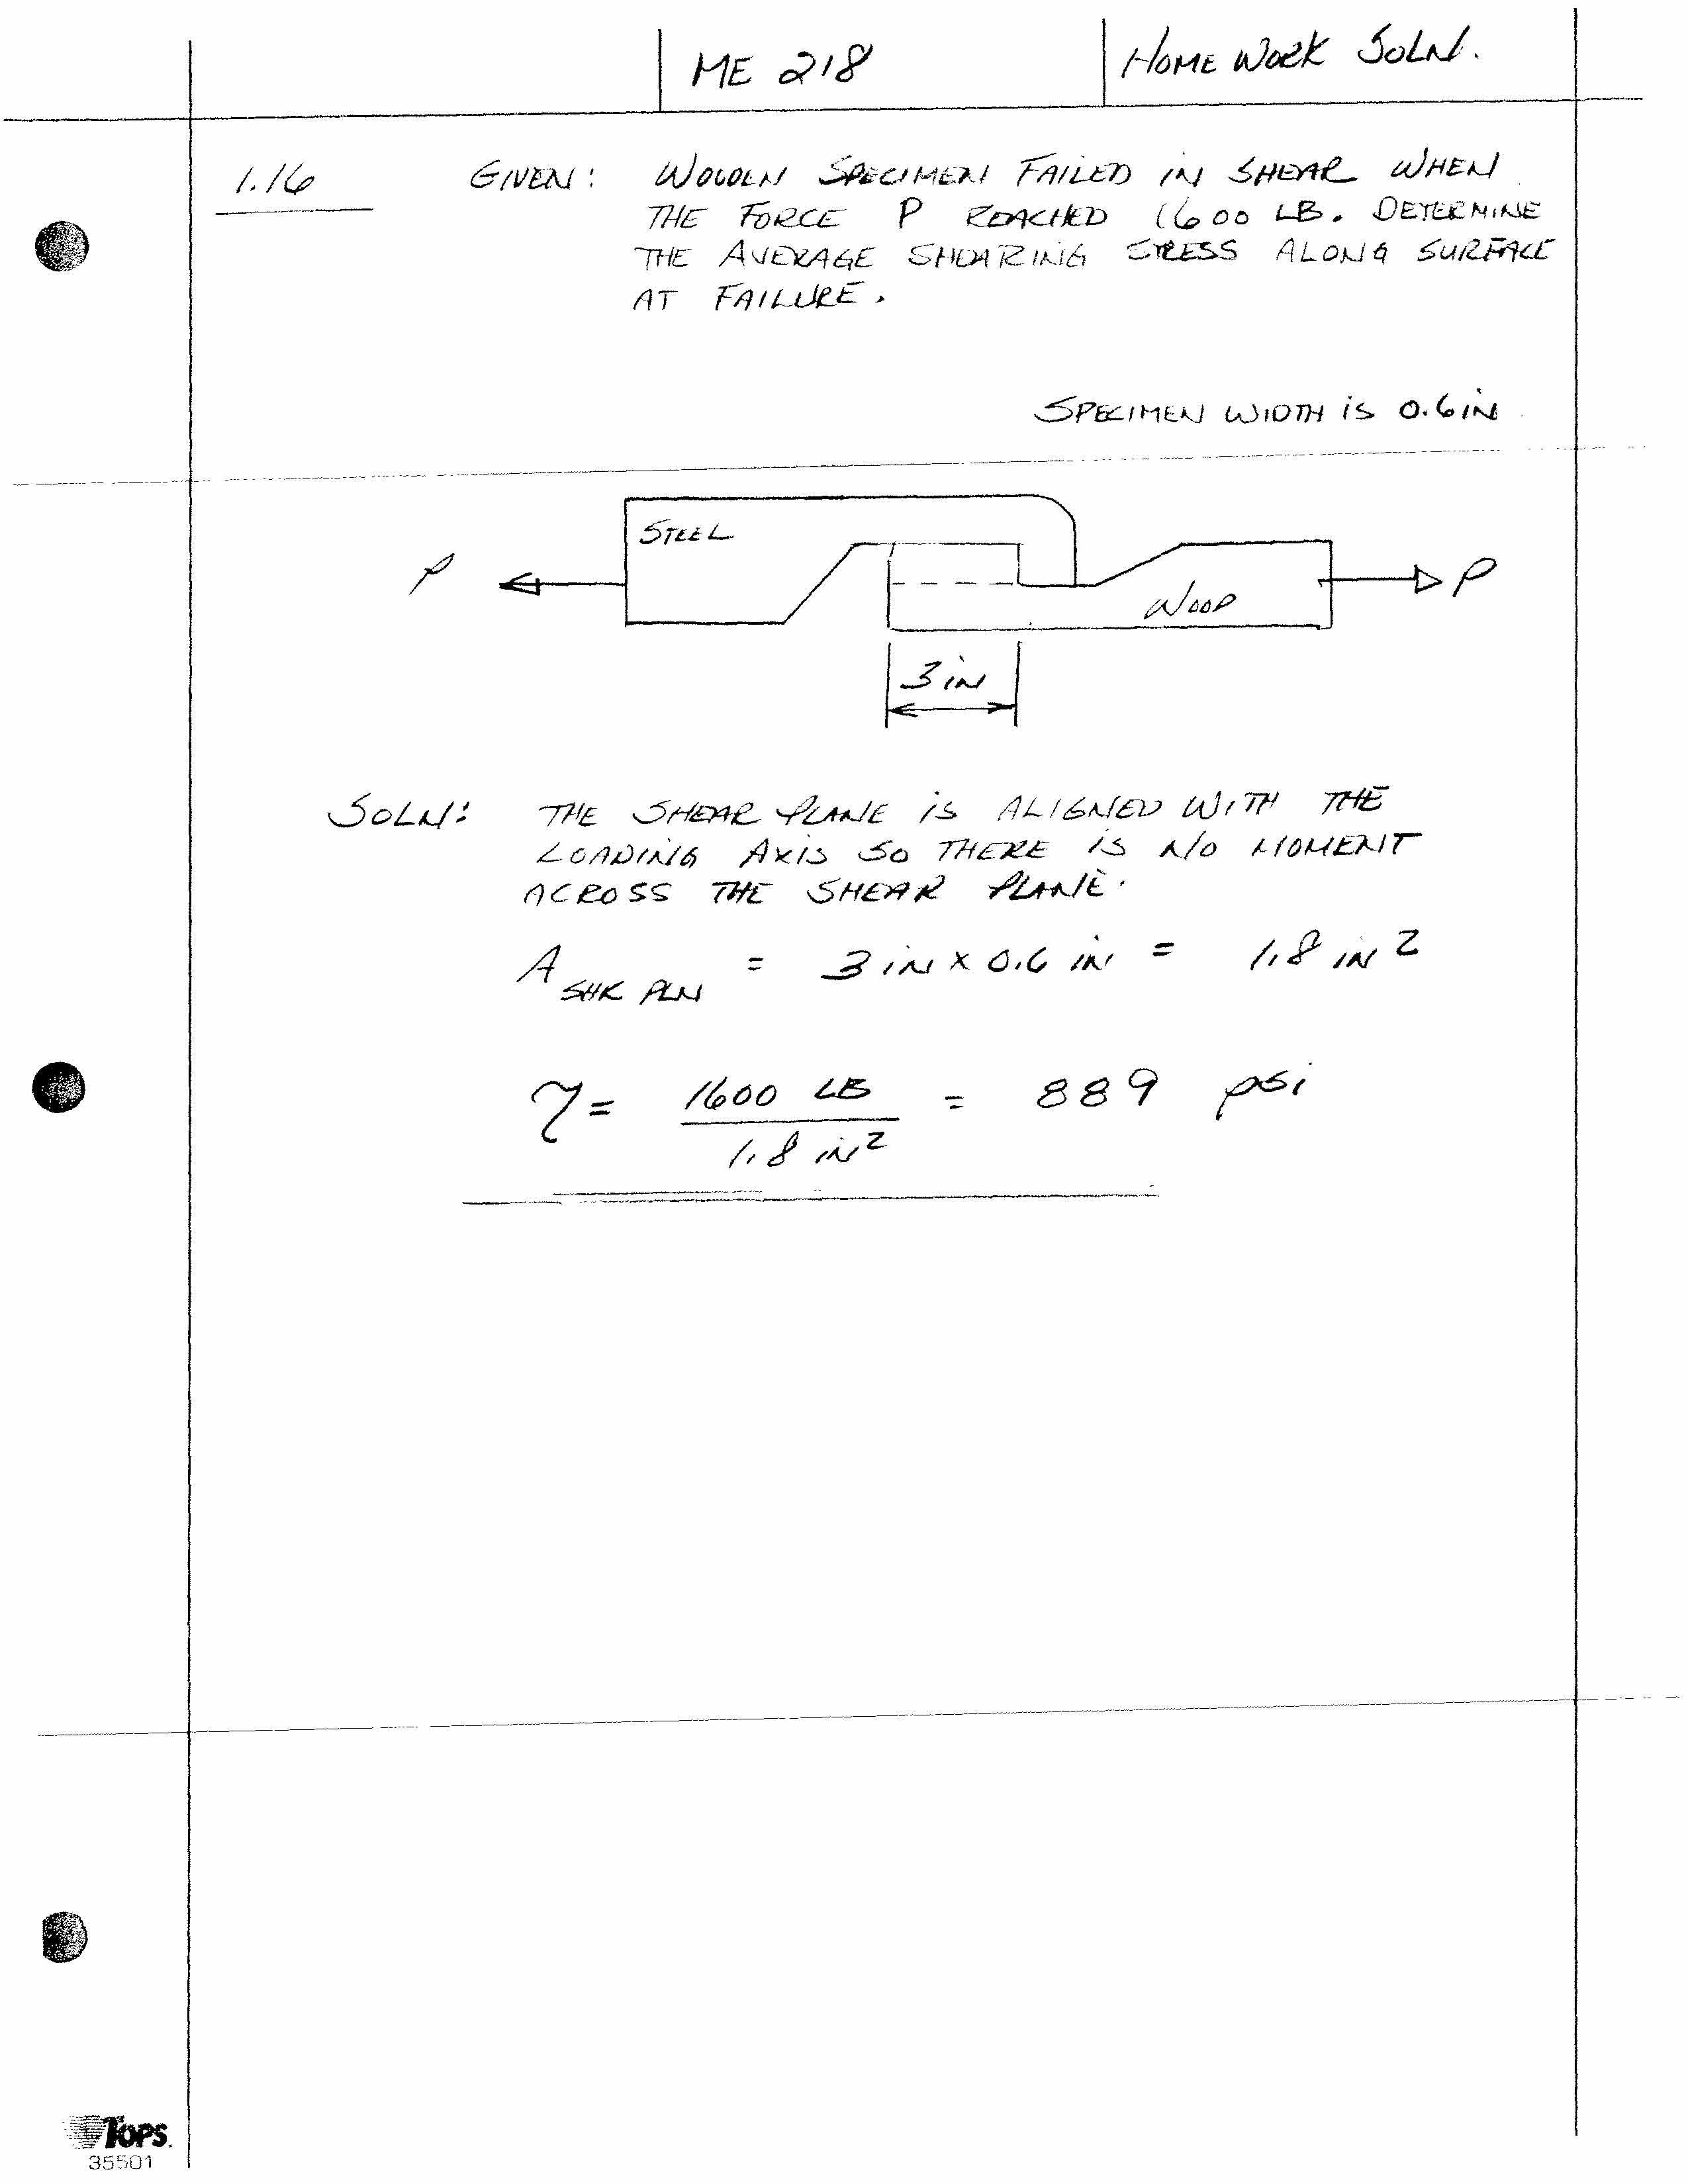 ME 218
HOME WORK SOLN.
1.16
GIVEN: WOODEN SPECIMEN FAILED IN SHEAR WHEN
THE FORCE P REACHED 1600 LB. DETERMINE
THE AVERAGE SHEARING STRESS ALONG SURFACE
AT FAILURE.
SPECIMEN WIDTH IS 0.6 IN
STEEL
P
P
WOOD
3 IN
SOLN: THE SHEAR PLANE IS ALIGNED WITH THE
LOADING AXIS SO THERE IS NO MOMENT
ACROSS THE SHEAR PLANE.
A SHR PLN = 3 IN X 0.6 IN = 1.8 IN²
τ = 1600 LB / 1.8 IN² = 889 psi
TOPS.
35501